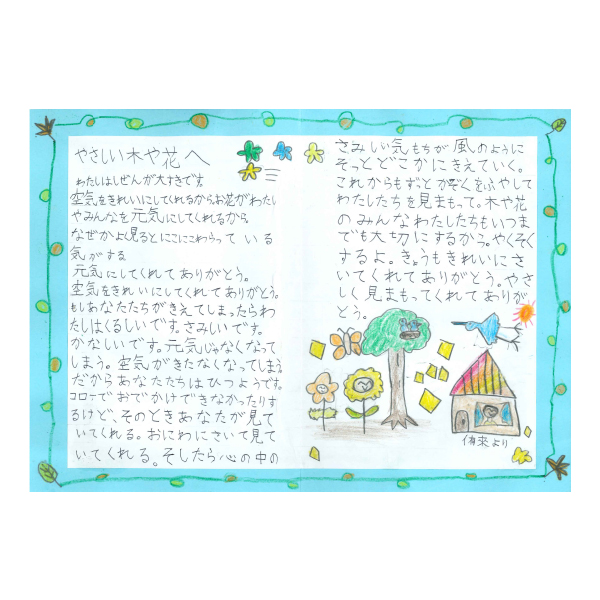 やさしい木や花へ
わたしはしぜんが大すきです。
空気をきれいにしてくれるからお花がわたし
やみんなを元気にしてくれるから
なぜかよく見るとにこにこわらっている
気がする
元気にしてくれてありがとう。
空気をきれいにしてくれてありがとう。
もしあなたたちがきえてしまったらわ
たしはくるしいです。さみしいです。
かなしいです。元気じゃなくなって
しまう。空気がきたなくなってしまう
だからあなたたちはひつようです。
コロナでおでかけできなかったりす
るけど、そのときあなたが見て
いてくれる。おにわにさいて見て
いてくれる。そしたら心の中の
さみしい気もちが風のように
そっとどこかにきえていく。
これからもずっとかぞくをふやして
わたしたちを見まもって。木や花
のみんなわたしたちもいつま
でも大切にするから。やくそく
するよ。きょうもきれいにさ
いてくれてありがとう。やさ
しく見まもってくれてありが
とう。
侑来より